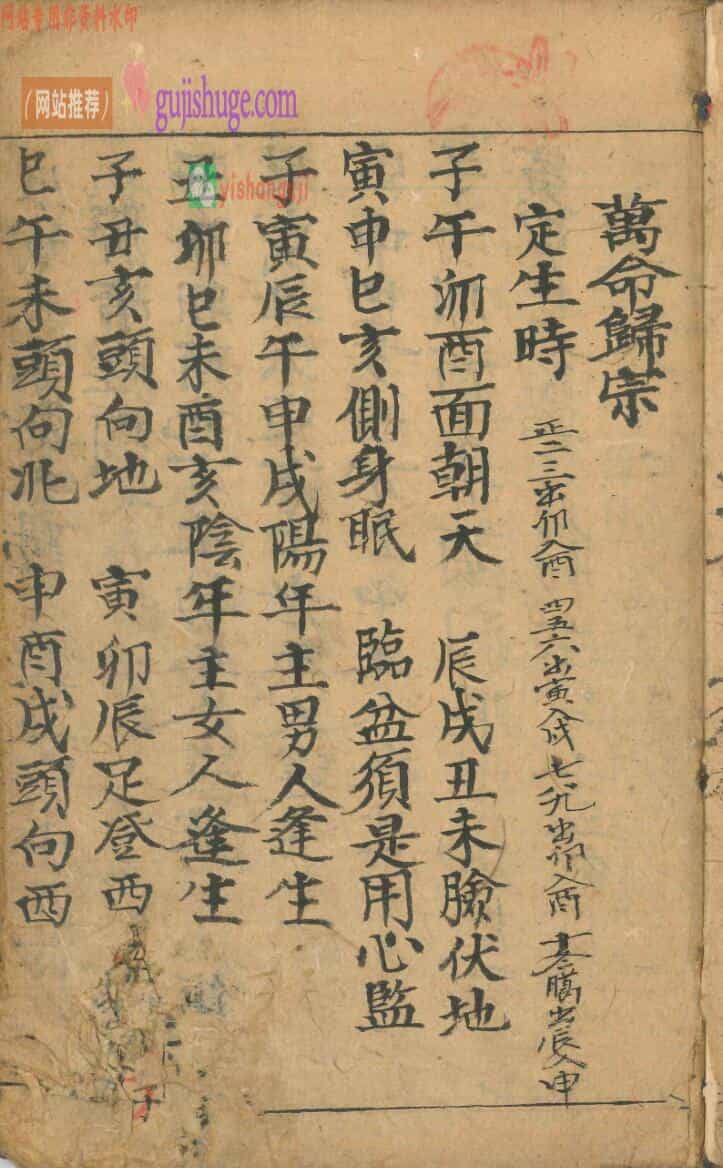 网站专用非资料水印
（网站推荐）
gujishuge.com
yishangji
萬命歸宗
定生時
正二三出卯入酉 四五六出寅入戌 七八九出卯入酉 出辰入申
子午卯酉面朝天 辰戌丑未臉伏地
寅申巳亥側身眠 臨盆須是用心監
子寅辰午申戌陽年主男人逢生
丑卯巳未酉亥陰年主女人逢生
子丑亥頭向地 寅卯辰足登西
巳午未頭向兆 申酉戌頭向西